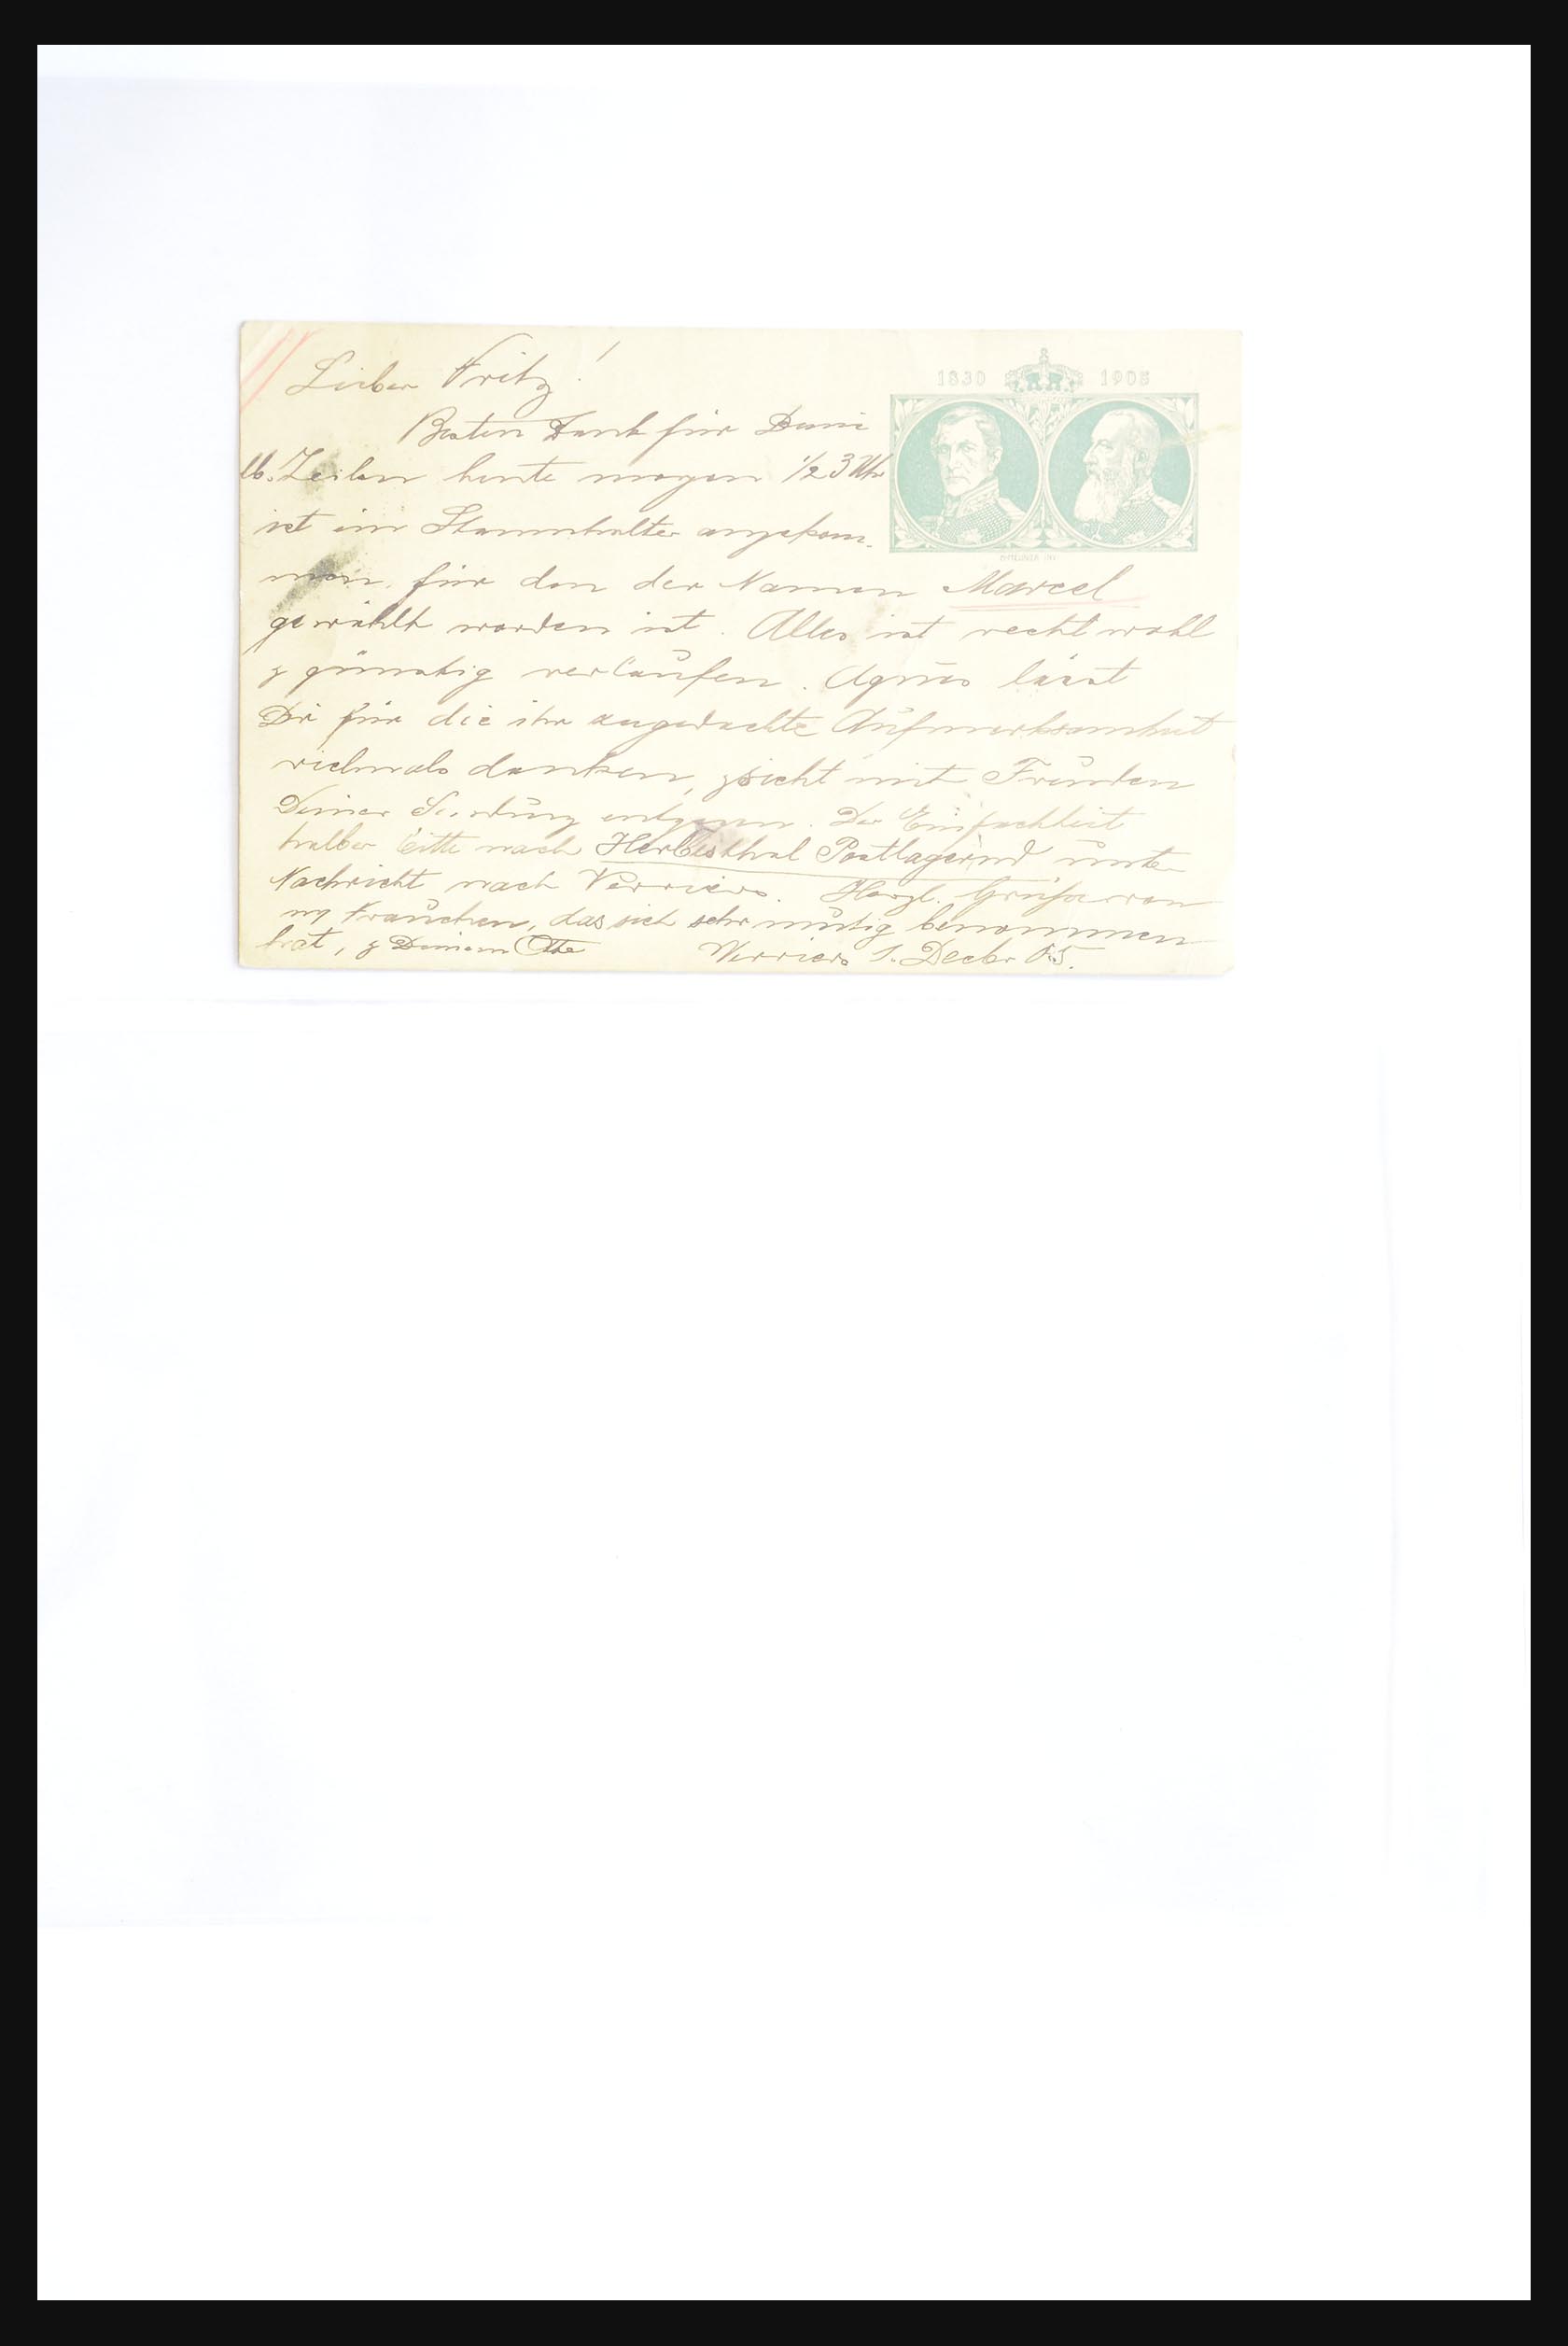 Lieber Fritz!
1830 1905
Besten Dank für Deine
lb. Zeilen heute morgen 1/2 3 Uhr
ist ein Stammhalter angekom-
men, für den der Namen Marcel
gewählt worden ist. Alles ist recht wohl
& günstig verlaufen. Agnes lässt
Dir für die ihr zugedachte Aufmerksamkeit
vielmals danken, & sieht mit Freuden
Deiner Sendung entgegen. Der Einfachheit
halber bitte nach Herbesthal Postlagernd unter
Nachricht nach Verviers. Herzl. Grüsse von
m Frauchen, das sich sehr mutig benommen
hat, & Deinem Otto
Verviers 1. Decbr 05.